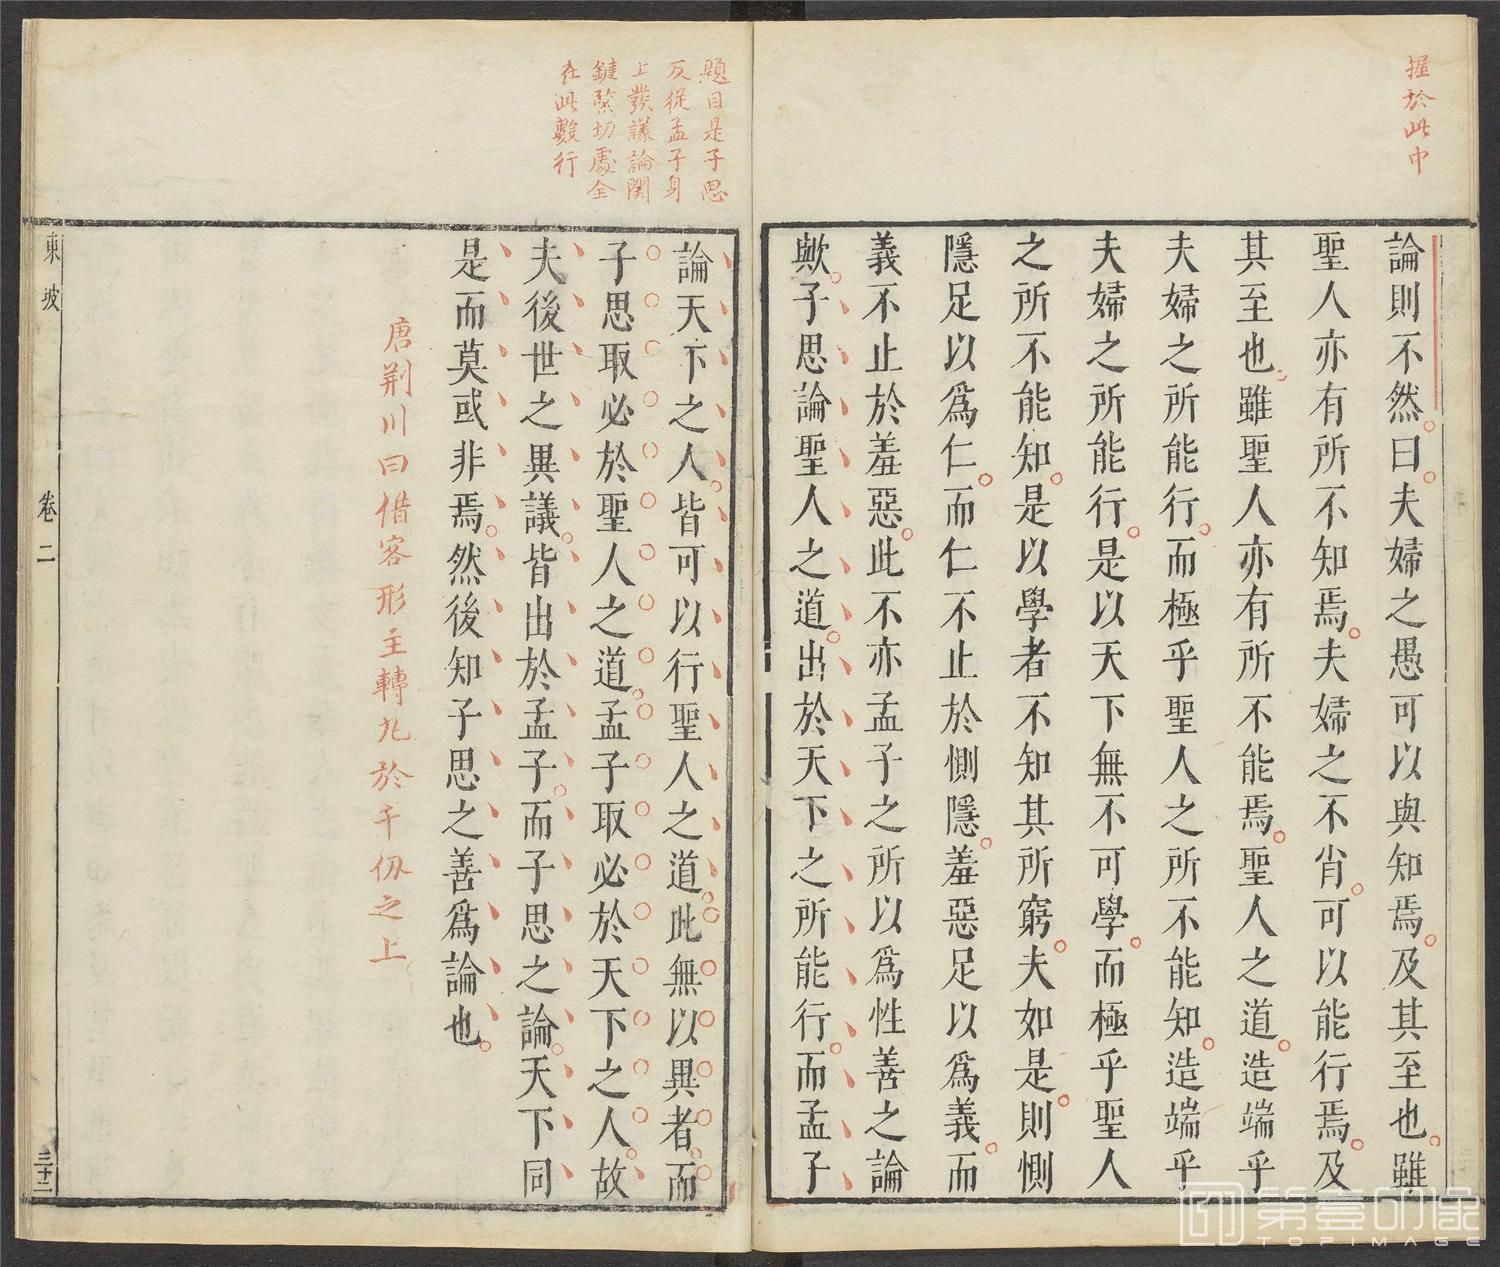 握於此中
論則不然曰夫婦之愚可以與知焉及其至也雖
聖人亦有所不知焉夫婦之不肖可以能行焉及
其至也雖聖人亦有所不能焉聖人之道造端乎
夫婦之所能行而極乎聖人之所不能知造端乎
夫婦之所能行是以天下無不可學而極乎聖人
之所不能知是以學者不知其所窮夫如是則惻
隱足以爲仁而仁不止於惻隱羞惡足以爲義而
義不止於羞惡此不亦孟子之所以爲性善之論
歟子思論聖人之道出於天下之所能行而孟子
題目是子思
反從孟子身
上發議論関
鍵緊切處全
在此數行
論天下之人皆可以行聖人之道此無以異者而
子思取必於聖人之道孟子取必於天下之人故
夫後世之異議皆出於孟子而子思之論天下同
是而莫或非焉然後知子思之善爲論也
唐荆川曰借客形主轉九於千仭之上
東坡
卷二
三十二
第壹印像
TOPIMAGE